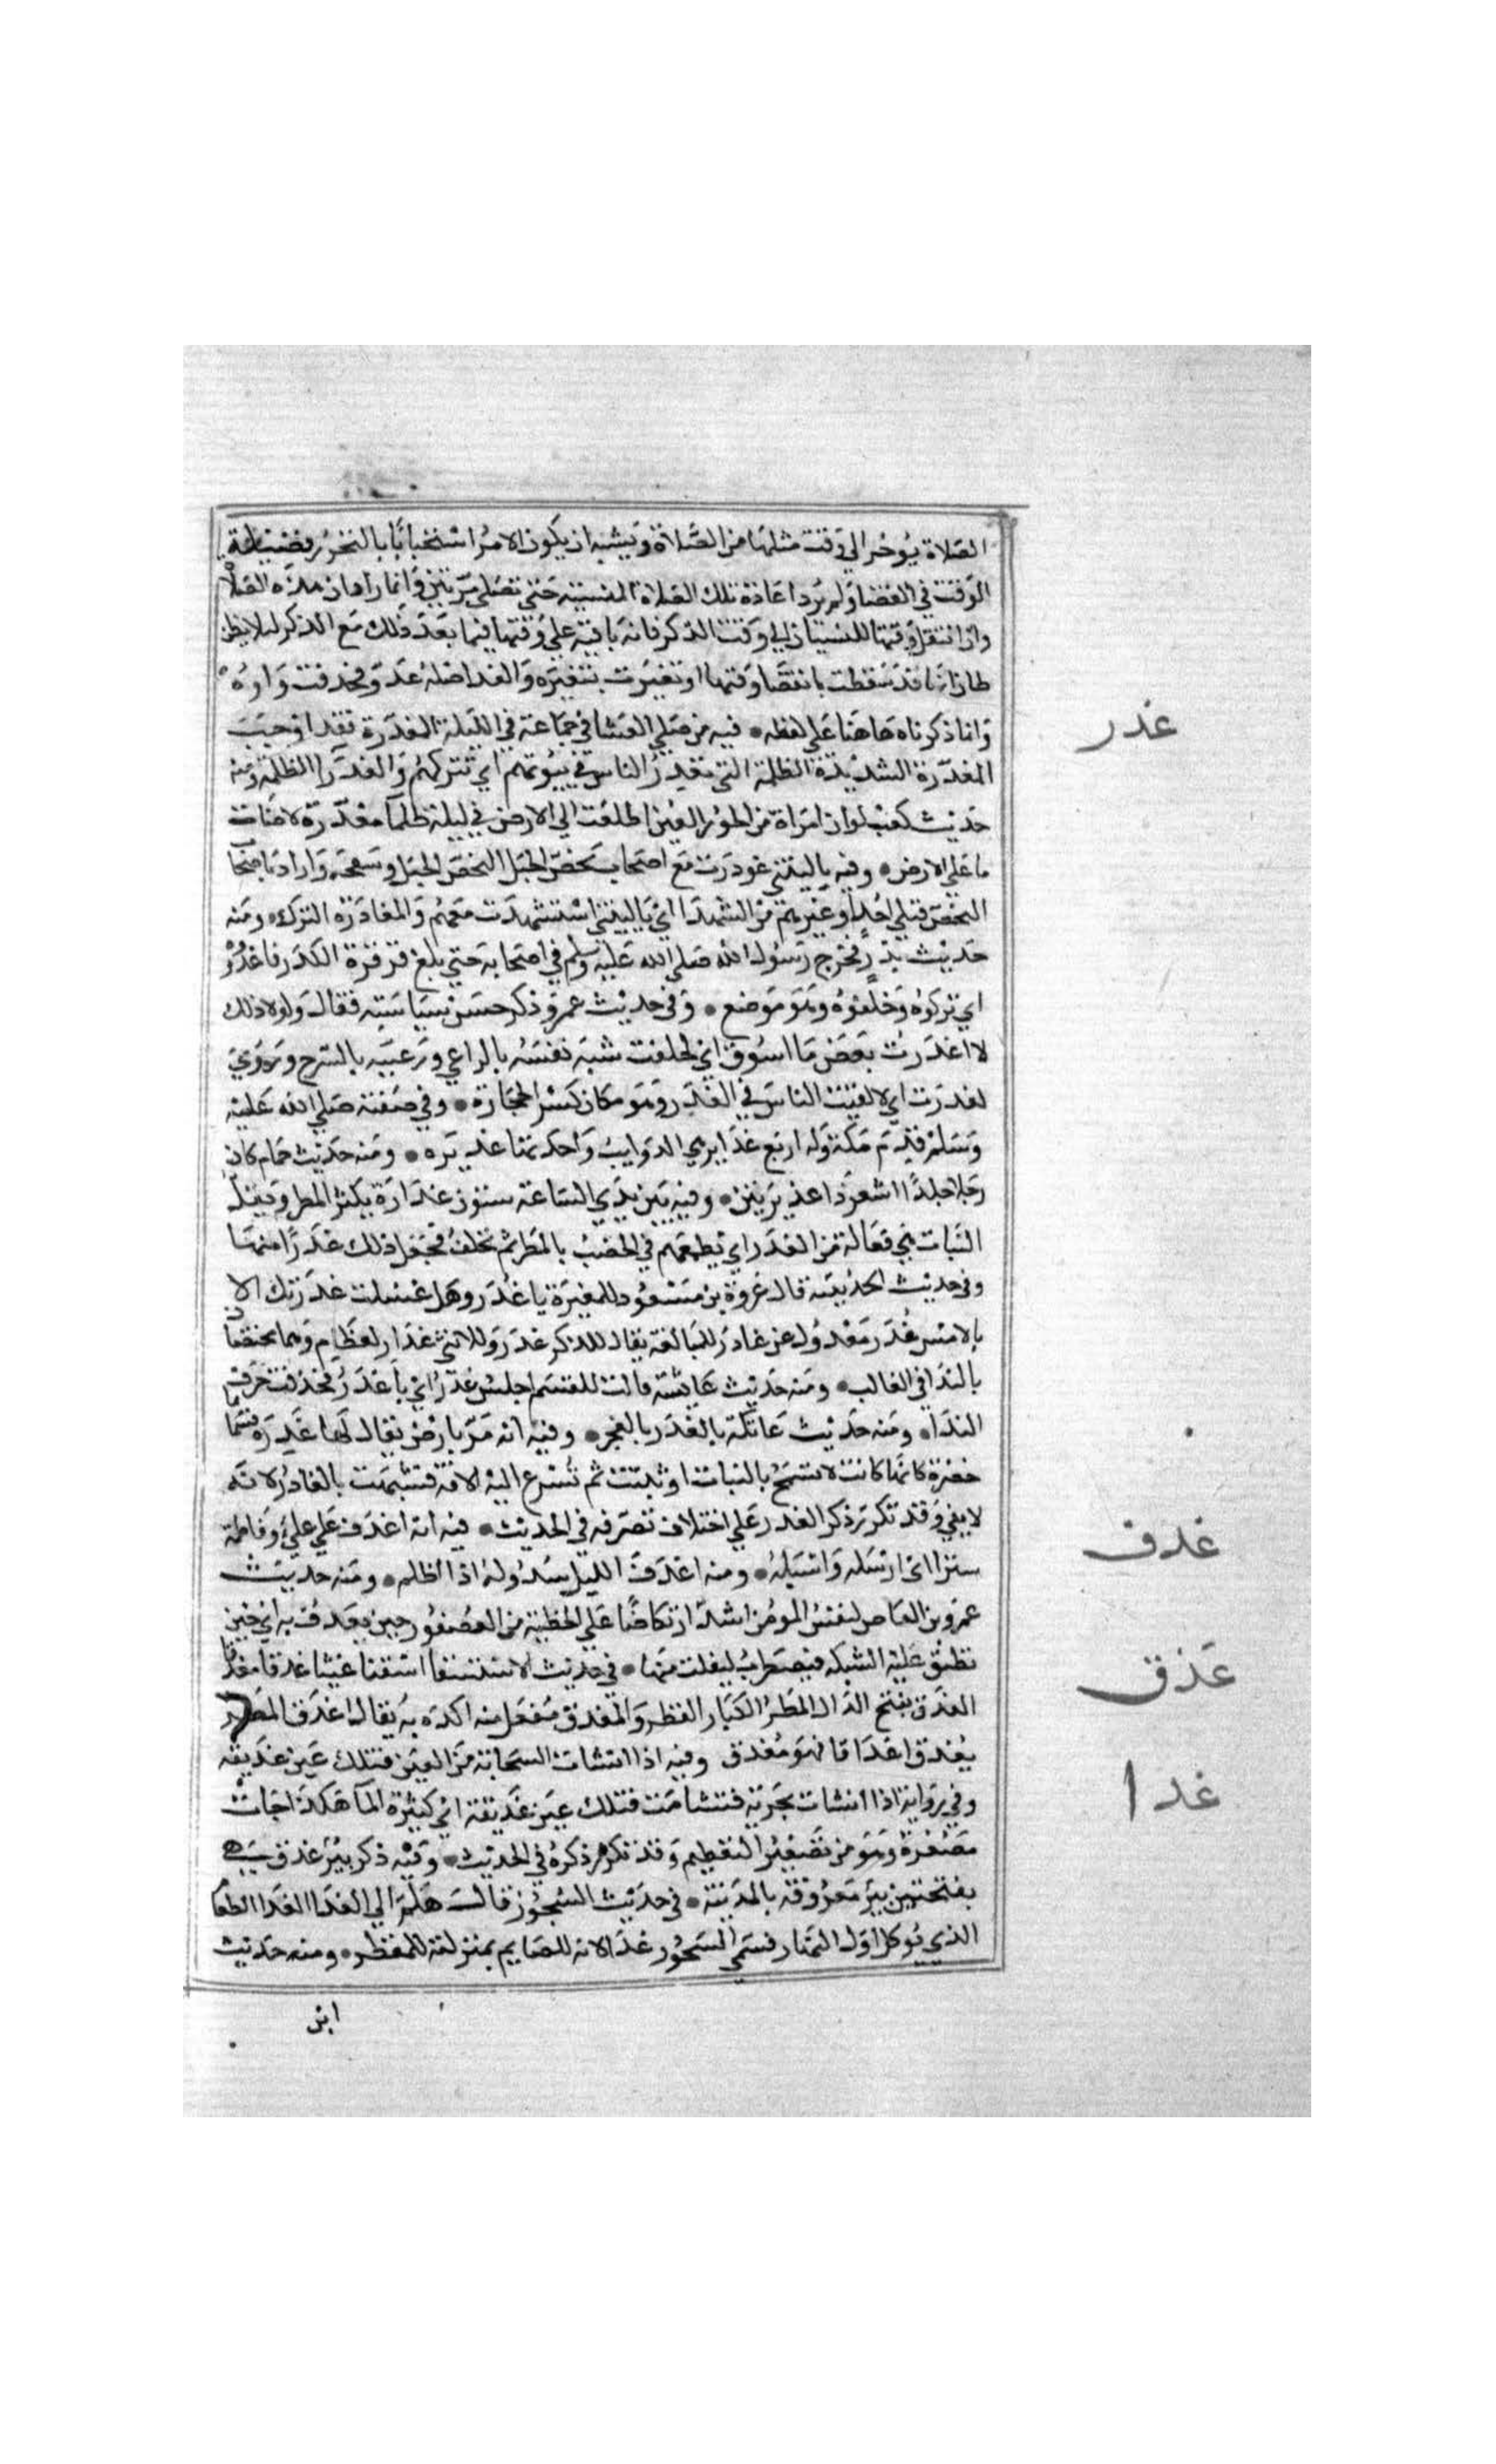 الصلاة يوخر الي وقت مثلها من الصلاة ويشبه ان يكون الامر استحبابا بالتحرز فضيلة
الوقت في القضا ولم يرد اعادة تلك الصلاة المنسية حتي تصلي مرتين وانما اراد ان هذه الصلاة
وان انتقل وقتها للنسيان الي وقت الذكر فانه باقية علي وقتها فيما بعد ذلك مع الذكر ليلا يظن
ظان انها قد سقطت بانقضا وقتها او تغيرت بتغيره والغد اصله غدو فحذفت واوه
وانا ذكرناه هاهنا علي لفظه • فيه من صلي العشا في جماعة في الليلة المغدرة فقد اوجب
المغدرة الشديدة الظلمة التي تغدر الناس في بيوتهم اي تتركهم والغدرا الظلمة ومنه
حديث كعب لو ان امراة من الحور العين اطلعت الي الارض في ليلة ظلما مغدرة لاضات
ما علي الارض • وفيه ياليتني غودرت مع اصحاب نحص الجبل النحص الجبل وسفحه واراد باصحاب
النحص قتلي احد او غيرهم من الشهدا اي ياليتني استشهدت معهم والمغادرة الترك • ومنه
حديث بدر فخرج رسول الله صلي الله عليه وسلم في اصحابه حتي بلغ قرقرة الكدر فاغدروه
اي تركوه وخلفوه وهو موضع • وفي حديث عمر وذكر حسن سياسته فقال ولولا ذلك
لاغدرت بعض ما اسوق اي لخلفت شبه نفسه بالراعي ورعيته بالسرح ويروي
لغدرت اي لالقيت الناس في الغدر وهو مكان كثير الحجارة • وفي صفته صلي الله عليه
وسلم قدم مكة وله اربع غداير هي الدوايب واحدتها غديره • ومنه حديث ضمام كان
رجلا جلدا اشعر ذا غديرتين • وفيه بين يدي الساعة سنون غدارة يكثر المطر ويقل
النبات هي فعالة من الغدر اي تطمعهم في الخصب بالمطر ثم تخلف فجعل ذلك غدرا منها
وفي حديث الحديبية قال عروة بن مسعود للمغيرة يا غدر وهل غسلت غدرتك الا
بالامس غدر معدول عن غادر للمبالغة يقال للذكر غدر وللانثي غدار لقطام وهما مختصان
بالندا في الغالب • ومنه حديث عايشة قالت للقسم اجلس غدر اي يا غدر فحذفت حرف
الندا • ومنه حديث عاتكة يالغدر يالفجر • وفيه انه مر بارض يقال لها غدره فسماها
خضرة كانها كانت لا تسمح بالنبات او تنبت ثم تسرع اليه الافة فشبهت بالغادر لانه
لا يفي وقد تكرر ذكر الغدر علي اختلاف تصرفه في الحديث • فيه انه اغدف علي علي وفاطمة
سترا اي ارسله واسبله • ومنه اغدف الليل سدوله اذا اظلم • ومنه حديث
عمرو بن العاص لنفس المومن اشد ارتكاضا علي الخطية من العصفور حين يغدف به اي حين
تطبق عليه الشبكه فيضطرب ليفلت منها • في حديث الاستسقا اسقنا غيثا غدقا مغدقا
الغدق بفتح الدال المطر الكبار القطر والمغدق مفعل منه اكده به يقال اغدق المطر
يغدق اغداقا فهو مغدق وفيه اذا انشات السحابة من العين فتلك عين غديقه
وفي رواية اذا انشات بحرية فتشامت فتلك عين غديقة اي كثيرة الما هكذا جات
مصغرة وهو من تصغير التعظيم وقد تكرر ذكره في الحديث • وفيه ذكر بير غدق هي
بفتحتين بير معروفة بالمدينة • في حديث السحور قال هلم الي الغدا الغدا الطعام
الذي يوكل اول النهار فسمي السحور غدا لانه للصايم بمنزلته للمفطر • ومنه حديث
ابن
غدر
غدف
غدق
غدا